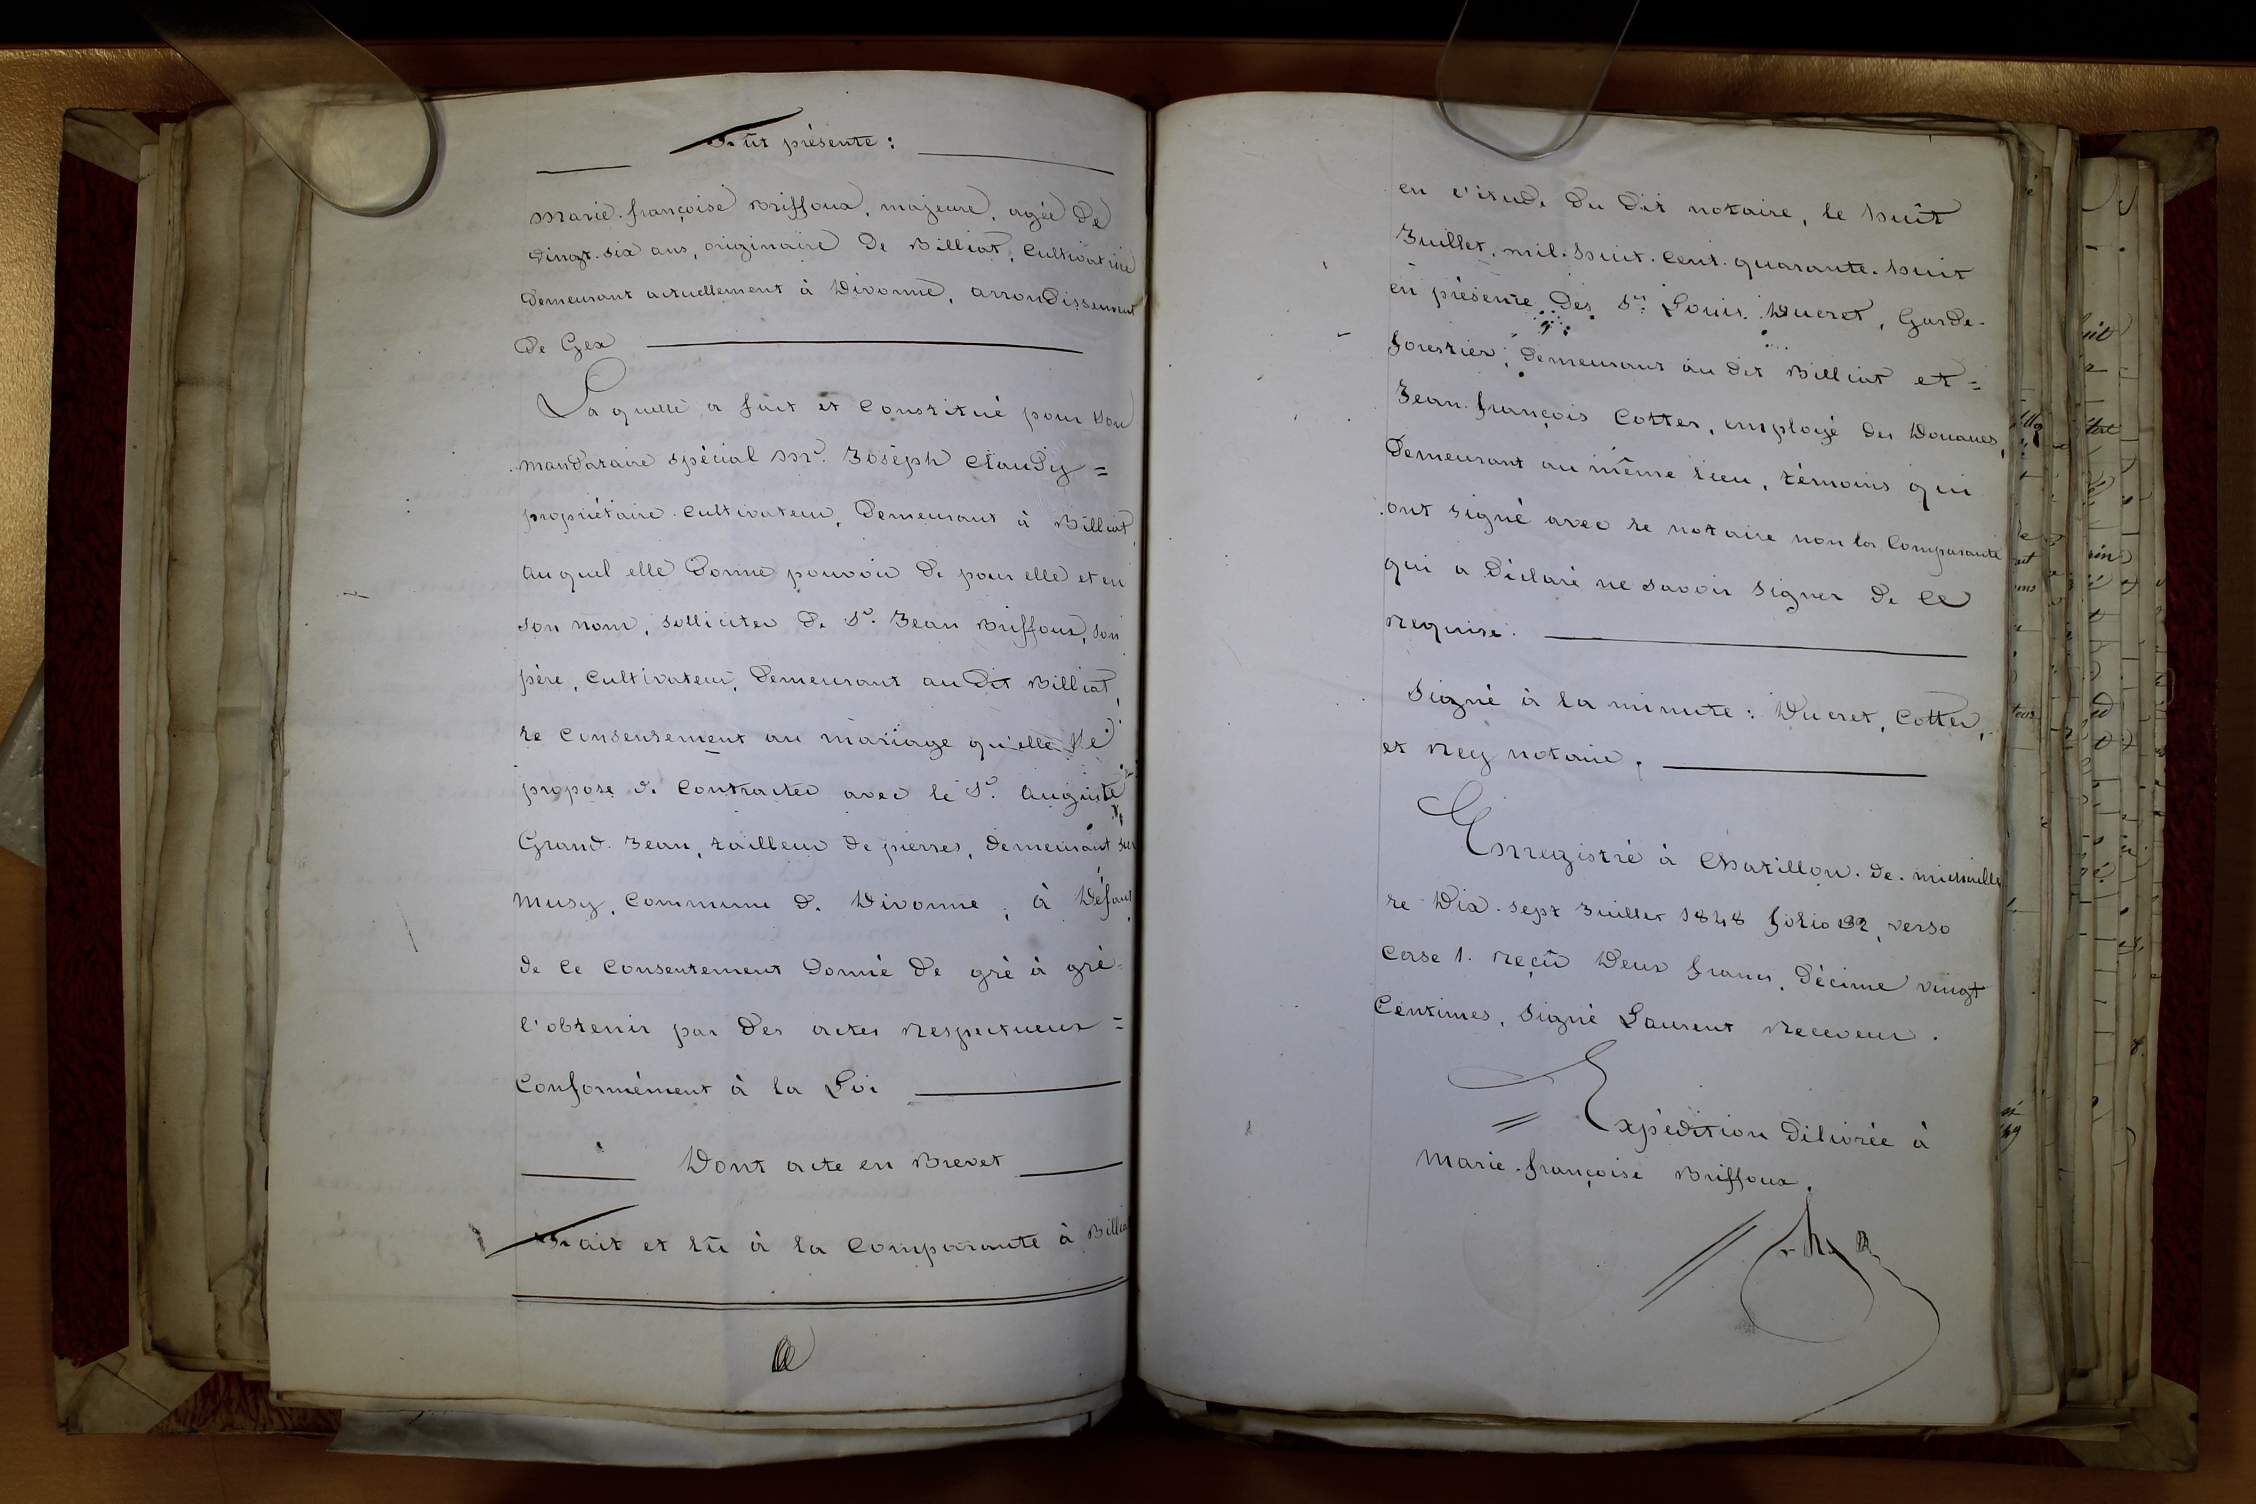 Fût présente :
Marie-françoise Briffoux, majeure, agée de
vingt-six ans, originaire de Billiat, Cultivatrice
demeurant actuellement à Divonne, arrondissement
de Gex
Laquelle a fait et constitué pour son
mandataire spécial Mr. Joseph Claudy =
propriétaire-cultivateur, demeurant à Billiat,
auquel elle donne pouvoir de pour elle et en
son nom, solliciter de Sr. Jean Briffoux, son
père, Cultivateur, demeurant au dit Billiat,
le consentement au mariage qu'elle se
propose de contracter avec le Sr. Auguste
Grand-Jean, tailleur de pierres, demeurant sur
Musy, Commune de Divonne ; à défaut
de ce consentement donné de gré à gré
l'obtenir par des actes respectueux =
Conformément à la Loi
Dont acte en Brevet
Fait et lû à la Comparante à Billiat
en l'étude du dit notaire, le huit
Juillet, mil-huit-cent-quarante-huit
en présence des Srs. Louis Ducret, Garde-
forestier, demeurant au dit Billiat et =
Jean-françois Cotter, employé des Douanes,
demeurant au même lieu, témoins qui
ont signé avec le notaire non la Comparante
qui a déclaré ne savoir signer de ce
requise.
Signé à la minute : Ducret, Cotter,
et Rey notaire.
Enregistré à Chatillon-de-michaille
le Dix-sept Juillet 1848 folio 32, verso
Case 1. reçû Deux francs, décime vingt
Centimes, signé Laurent Receveur.
Expédition délivrée à
Marie-françoise Briffoux.